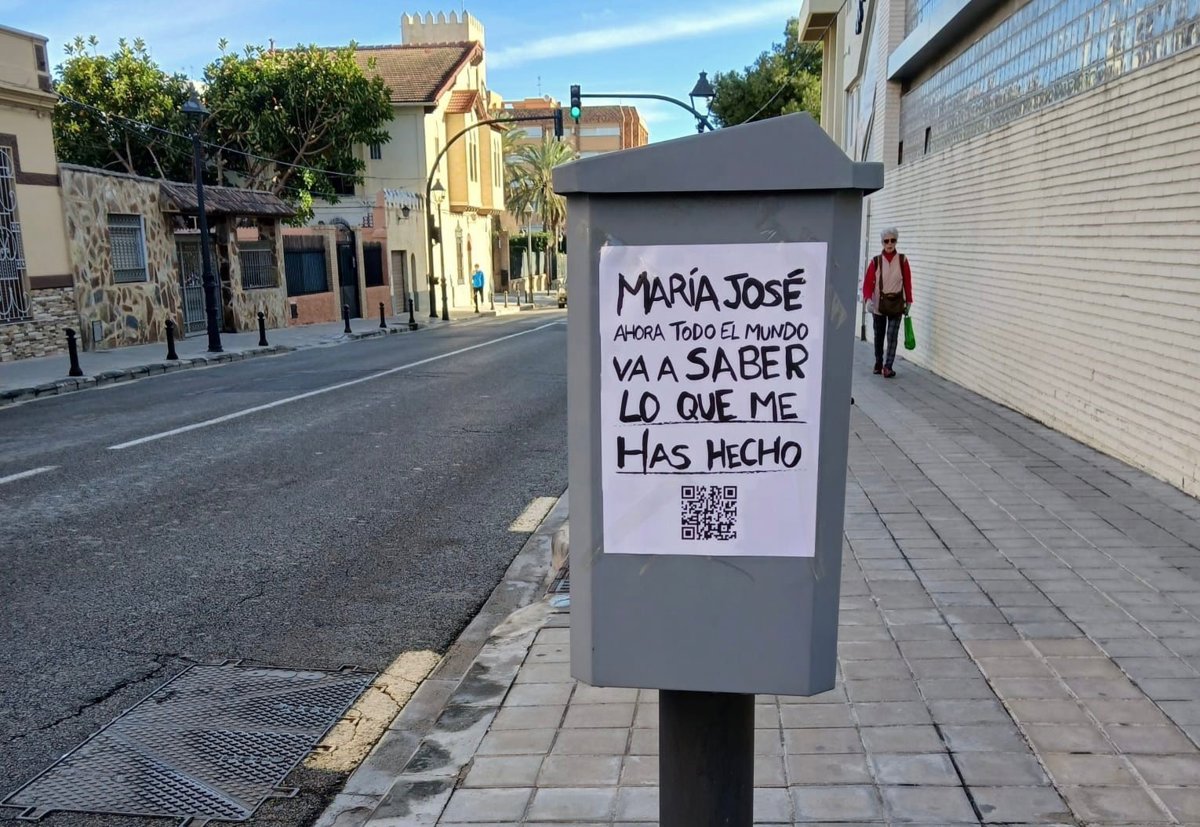 MARÍA JOSÉ
AHORA TODO EL MUNDO
VA A SABER
LO QUE ME
HAS HECHO